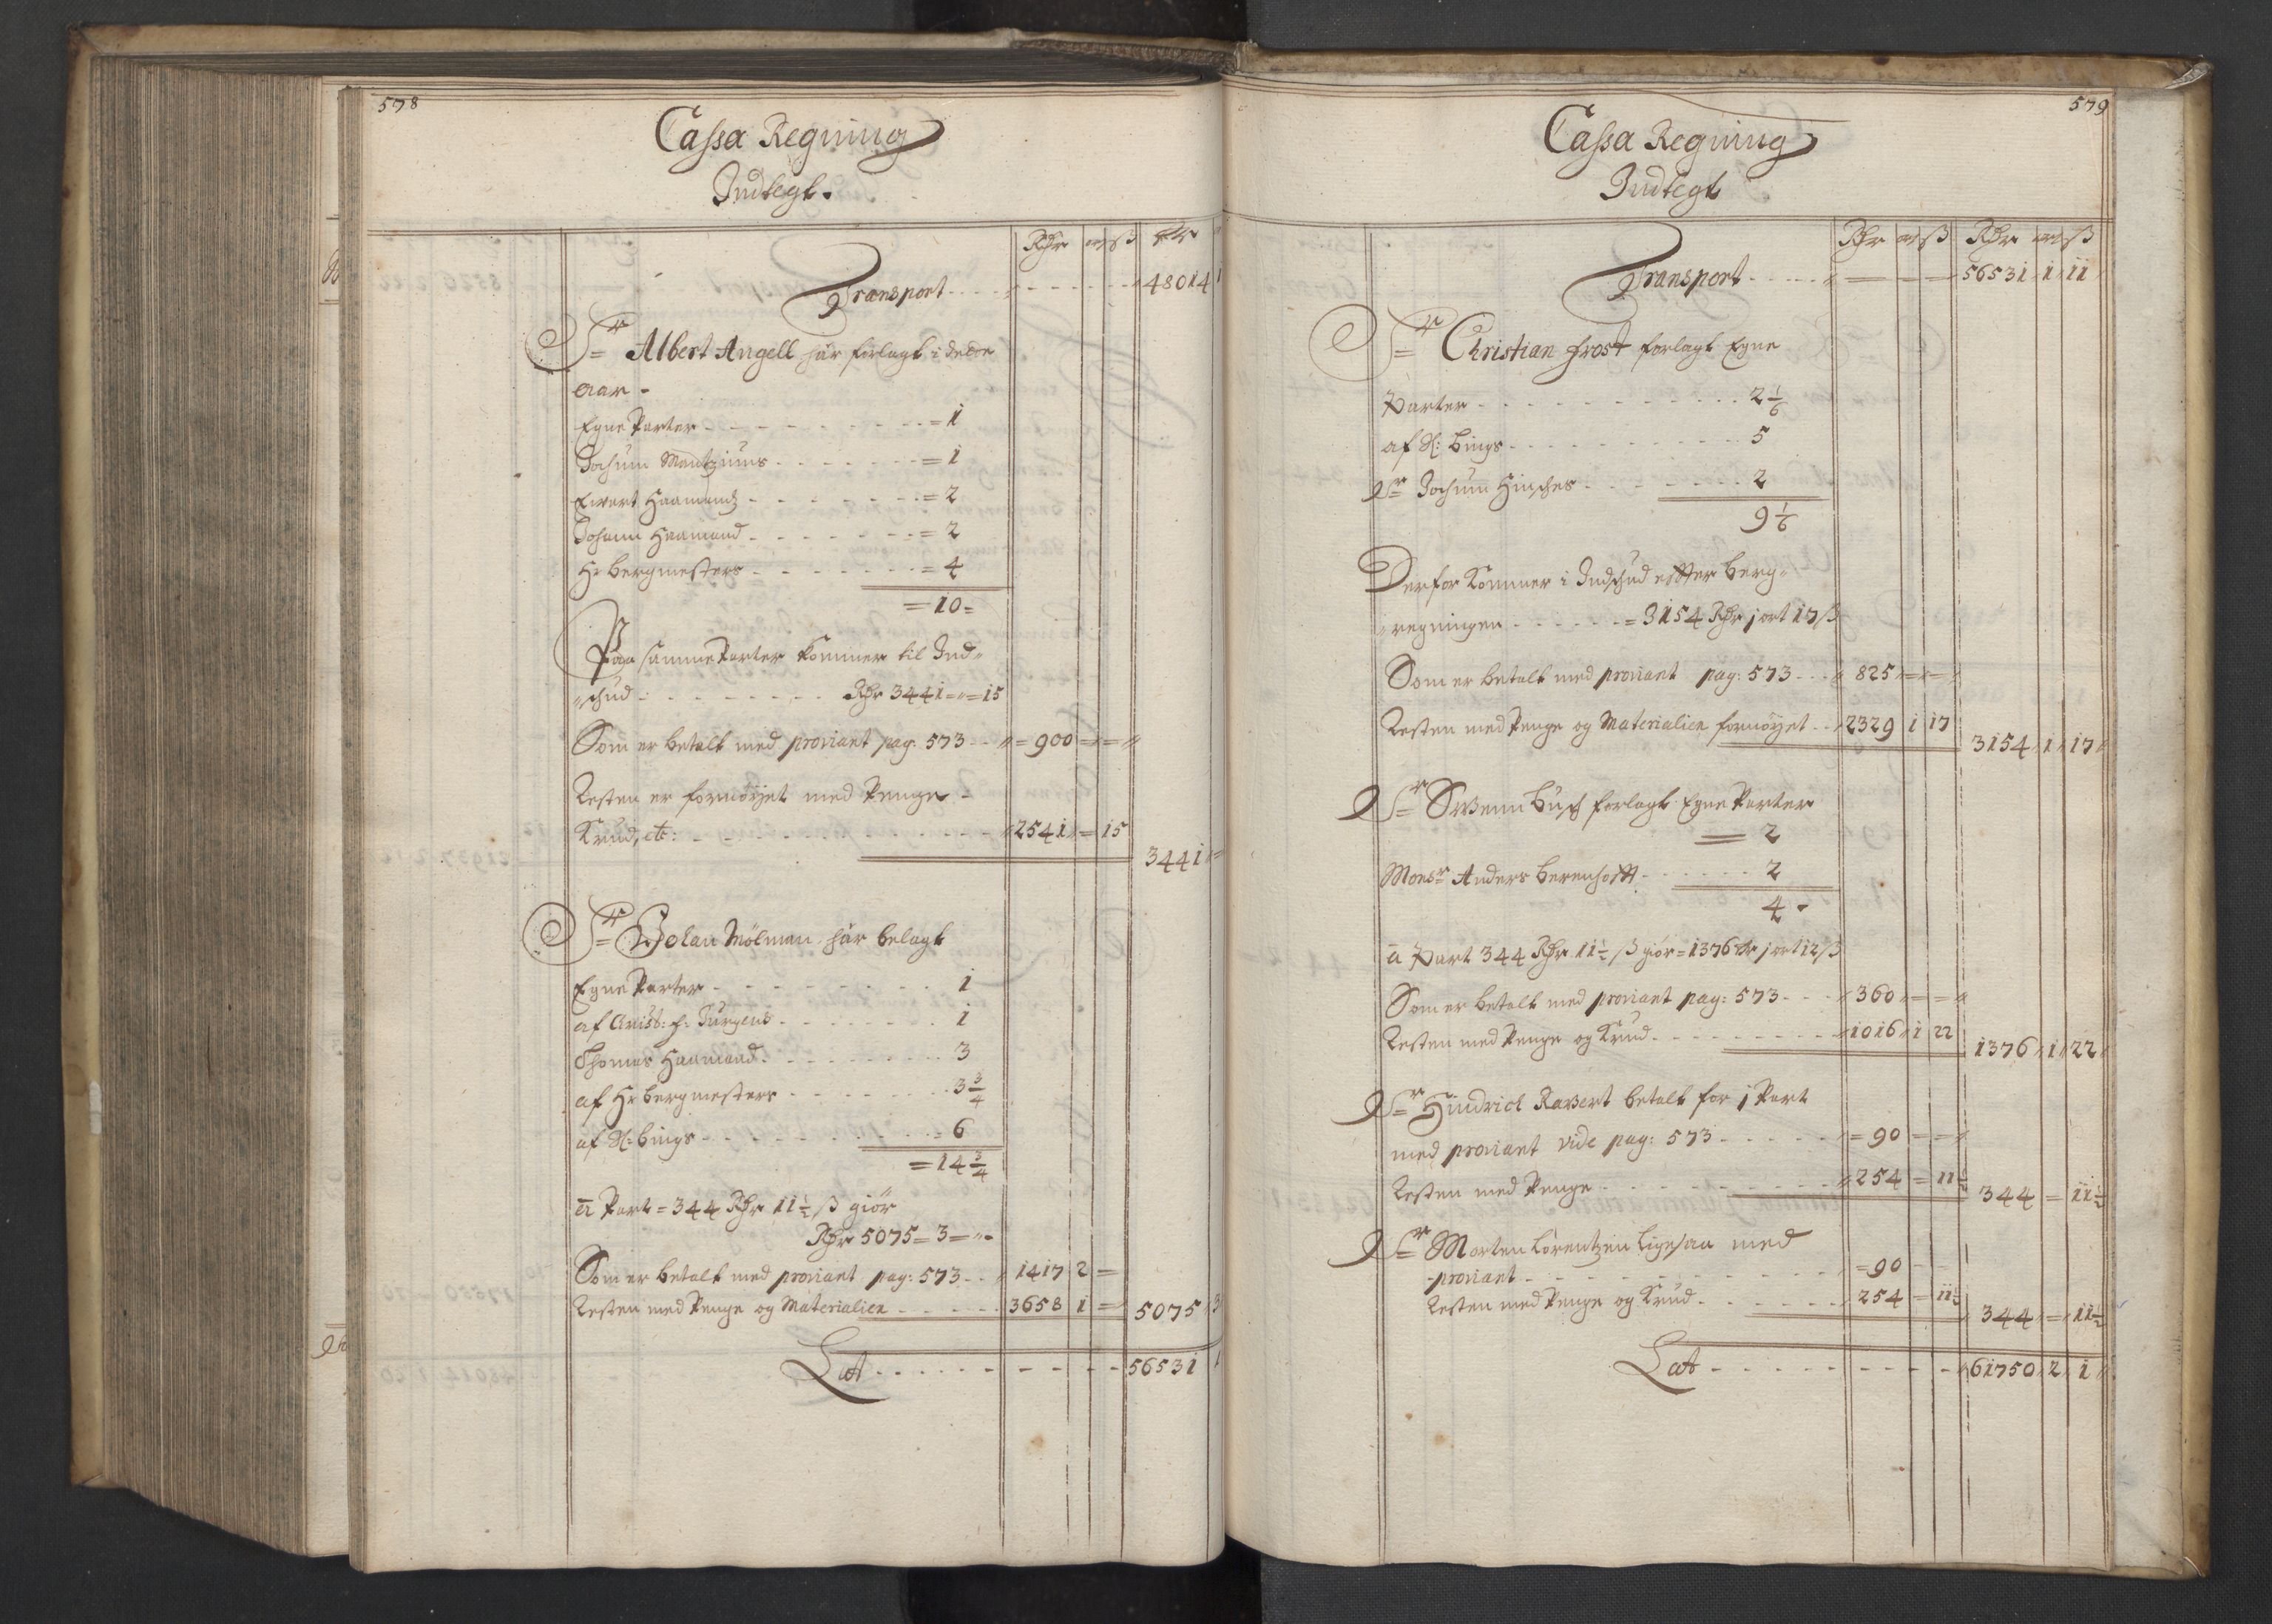 578
Cassa Regning
Indtegt.
Rdr ort ß Rdr
Transport - - - - 48014 1
Sr Albert Angell har forlagt i dette
Aar -
Egne Parter - - - - = 1
Jochum Mentziuns - - - - = 1
Ewert Haamandz - - - - = 2
Johann Haamand - - - - = 2
Hr Bergmesters - - - - = 4
= 10 =
Paa samme Parter kommer til Ind-
schud - - - - Rdr 3441 = " = 15
Som er betalt med proviant pag: 573 - - = 900 = =
Resten er fornøyet med Penge -
Krud, etc: - - - - 2541 = 15
3441 =
Sr Johan Mølman har belagt
Egne Parter - - - - 1
af Christ: f: Jürgens - - - - 1
Thomas Haamand - - - - 3
af Hr Bergmesters - - - - 3 3/4
af Sl: Bings - - - - = 6
= 14 3/4
a Part = 344 Rdr 11 1/2 ß giör
Rdr 5075 = 3 = " -
Som er betalt med proviant pag: 573 - - 1417 2 =
Resten med Penge og Materialien - - - - 3658 1 = 5075 3
Lat - - - - 56531 1
579
Cassa Regning
Indtegt
Rdr ort ß Rdr ort ß
Transport - - - - 56531 1 11
Sr Christian Frost forlagt Egne
Parter - - - - 2 1/6
af Sl: Bings - - - - 5
Sr Jochum Hinsches - - - - 2
9 1/6
Derfor kommer i Indschud effter Berg-
regningen - - - - = 3154 Rdr j ort 17 ß
Som er betalt med proviant pag: 573 - - 825 = =
Resten med Penge og Materialien fornøyet - - 2329 1 17
3154 1 17
Sr Swenn Busch forlagt Egne Parter
= 2
Monsr Anders Berenhofft - - - - 2
4 -
a Part 344 Rdr 11 1/2 ß giör = 1376 dr j ort 12 ß
Som er betalt med proviant pag: 573 - - - 360 = =
Resten med Penge og Krud - - - - 1016 1 22
1376 1 22
Sr Hindrich Ravert betalt for j Part
med proviant vide pag: 573 - - - - = 90 = =
Resten med Penge - - - - 254 = 11 1/2
344 = 11 1/2
Sr Morten Lorentzen Ligesaa med
-proviant - - - - = 90
Resten med Penge og Krud - - - - 254 = 11 1/2
344 = 11 1/2
Lat - - - - 61750 2 1